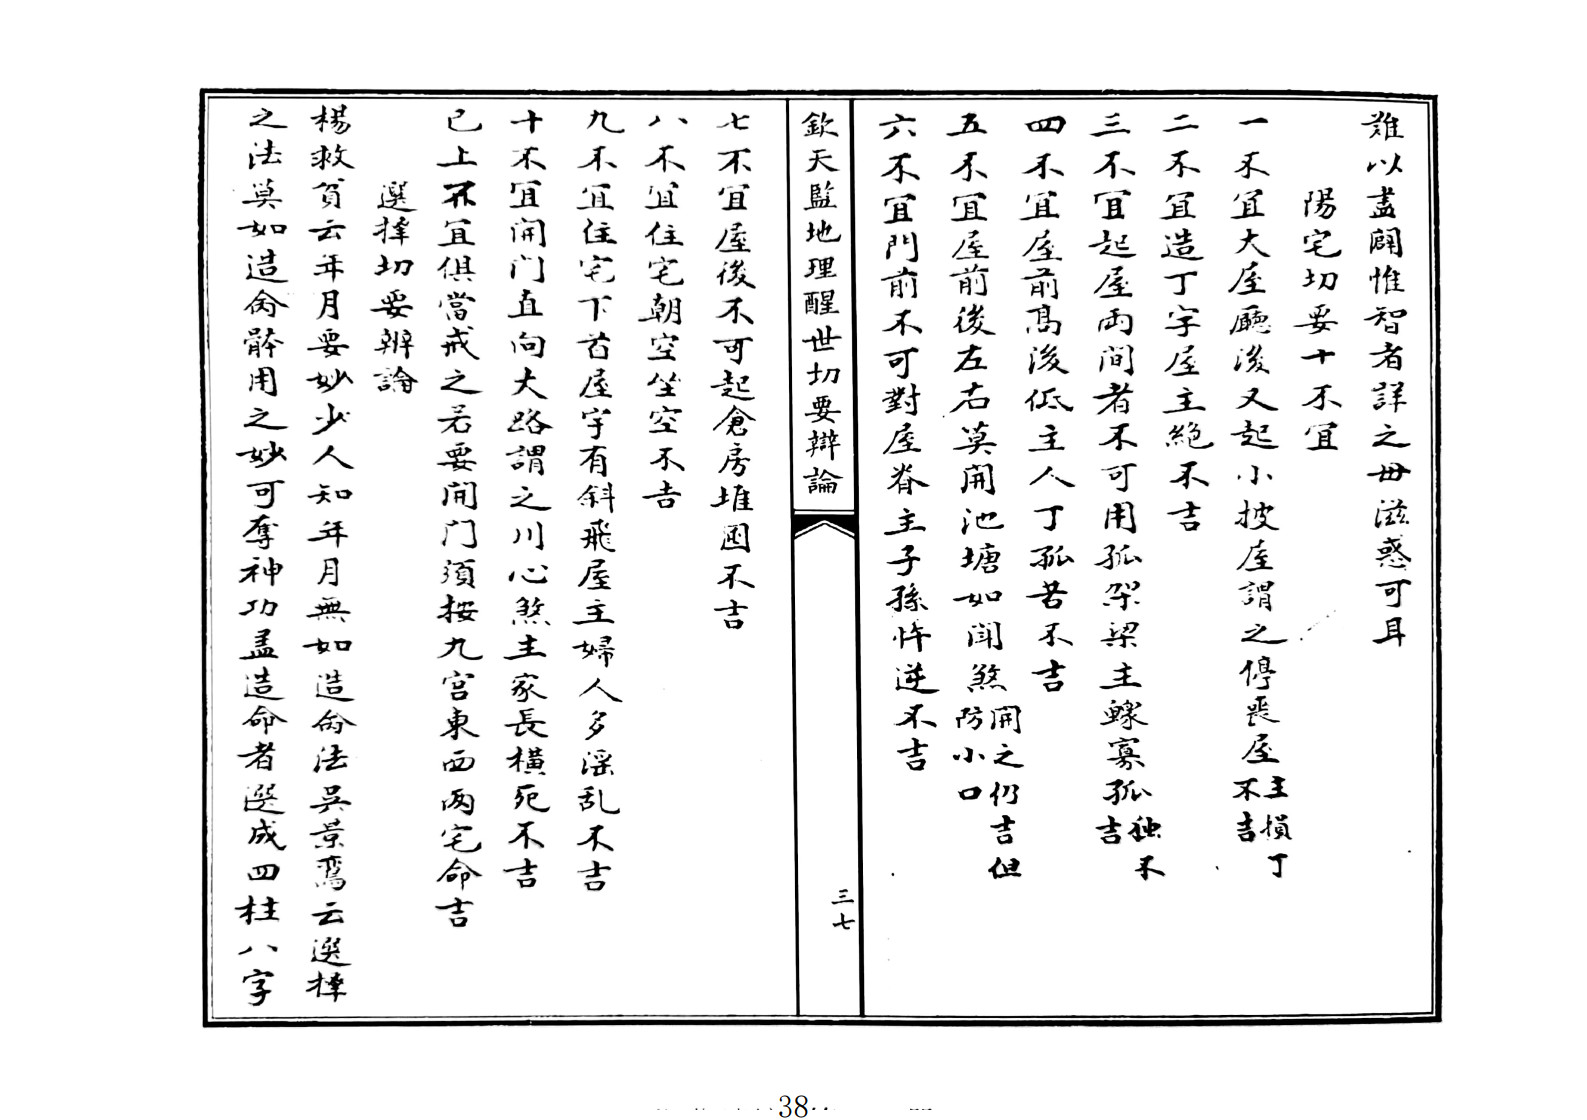 難以盡闢惟智者詳之毋滋惑可耳
陽宅切要十不宜
一不宜大屋廳後又起小披屋謂之停喪屋主損丁不吉
二不宜造丁字屋主絕不吉
三不宜起屋兩間者不可用孤架梁主鰥寡孤独不吉
四不宜屋前高後低主人丁孤苦不吉
五不宜屋前後左右莫開池塘如開煞開之仍吉但防小口
六不宜門前不可對屋脊主子孫忤逆不吉
欽天監地理醒世切要辯論
三七
七不宜屋後不可起倉房堆囷不吉
八不宜住宅朝空坐空不吉
九不宜住宅下首屋宇有斜飛屋主婦人多淫乱不吉
十不宜開门直向大路謂之川心煞主家長橫死不吉
已上不宜俱當戒之若要開门須按九宮東西兩宅命吉
選擇切要辨論
楊救貧云年月要妙少人知年月無如造命法吳景鸞云選擇
之法莫如造命體用之妙可奪神功孟造命者選成四柱八字
38